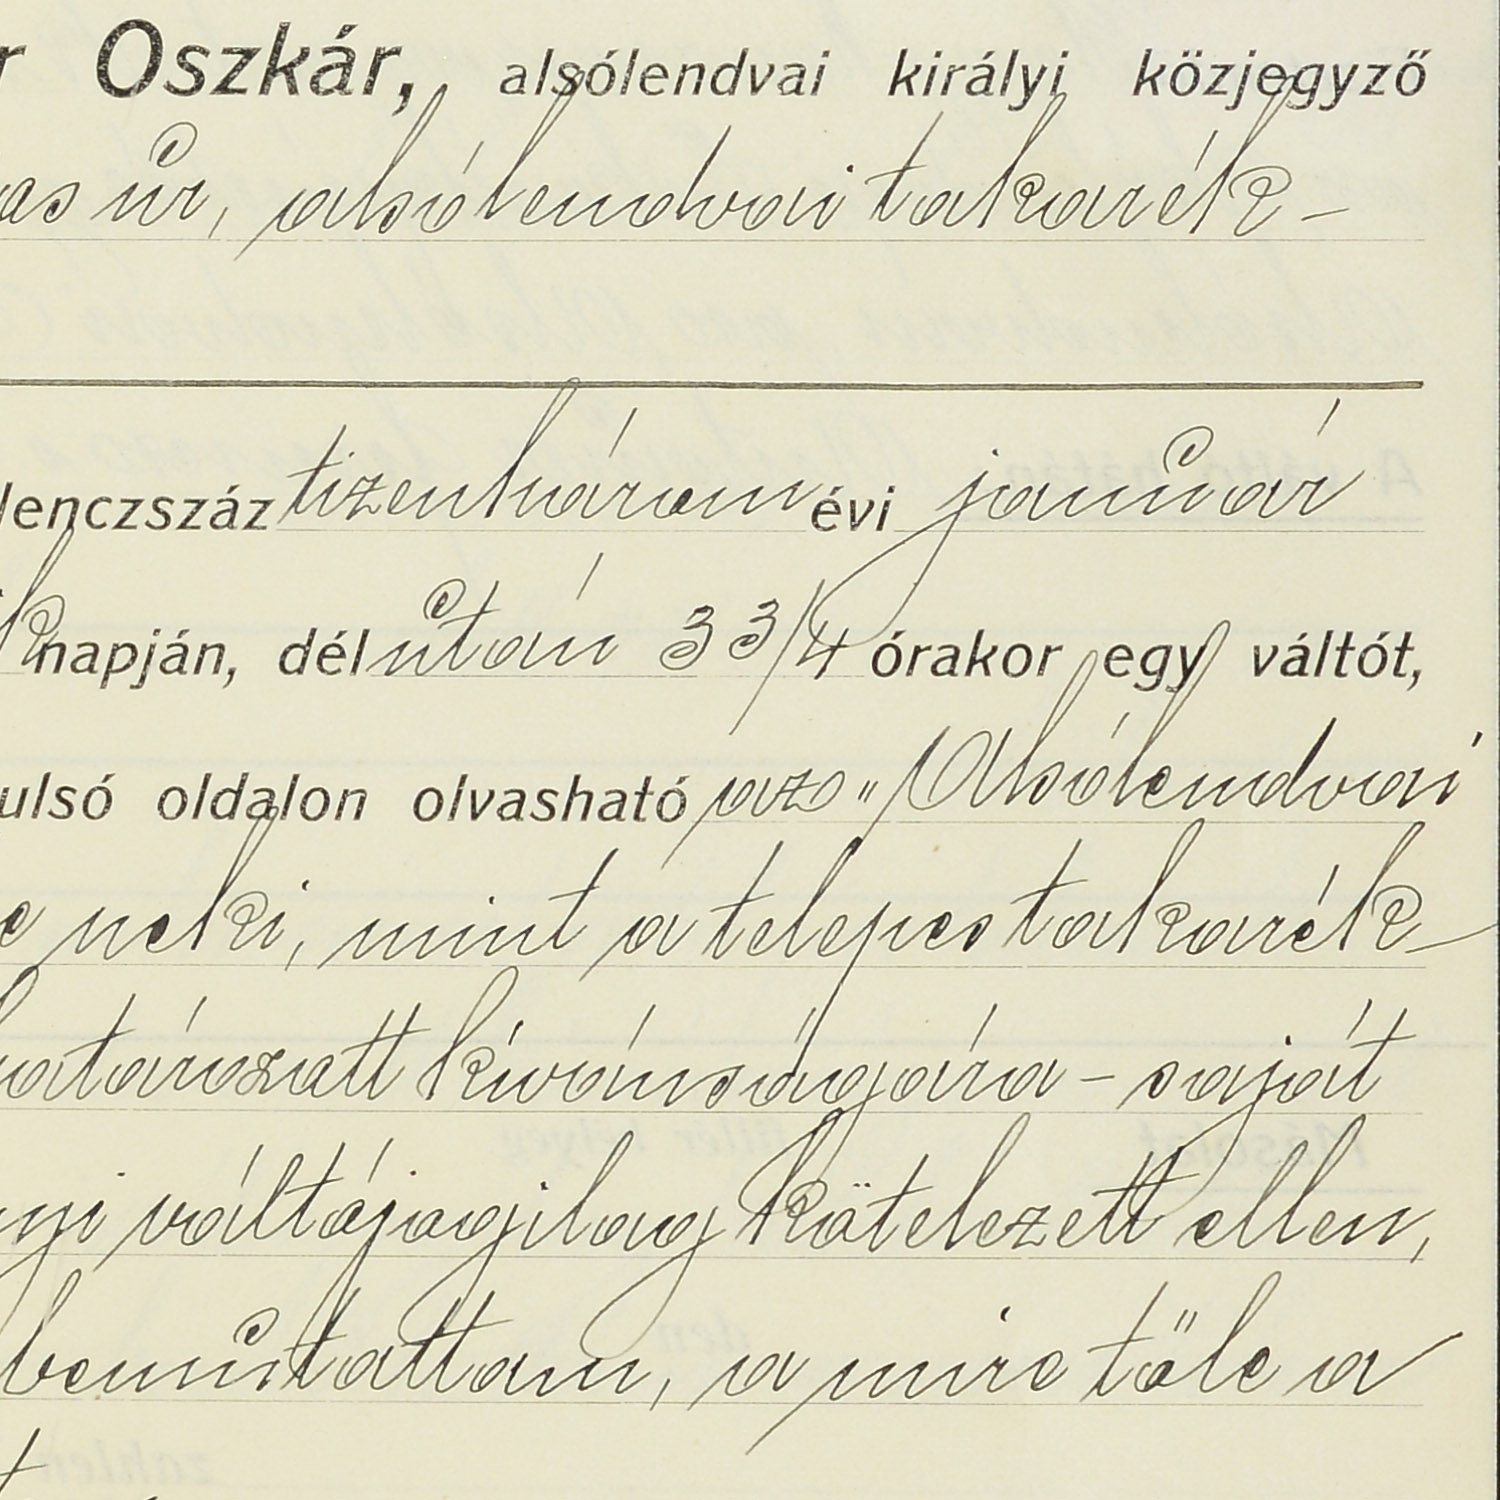 r Oszkár, alsólendvai királyi közjegyző
as úr, alsólendvai takarék-
lenczszáz tizenhárom évi január
k napján, délután 3 3/4 órakor egy váltót,
ulsó oldalon olvasható az „Alsólendvai
e neki, mint a telepes takarék-
határozatt kívánságára - saját
nyi váltójogilag kötelezett ellen,
bemutattam, a mire tőle a